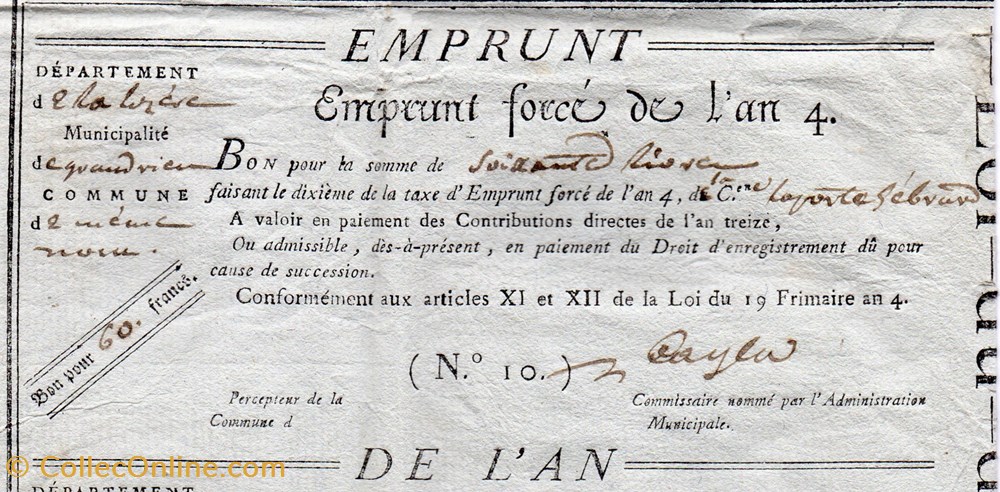 EMPRUNT
Emprunt forcé de l'an 4.
DÉPARTEMENT
de la lozère
Municipalité
de grandrieu
COMMUNE
de même
nom.
Bon pour 60. francs.
BON pour la somme de soixante livres
faisant le dixième de la taxe d'Emprunt forcé de l'an 4, de la C.ene laporte hébrard
A valoir en paiement des Contributions directes de l'an treize,
Ou admissible, dès-à-présent, en paiement du Droit d'enregistrement dû pour
cause de succession.
Conformément aux articles XI et XII de la Loi du 19 Frimaire an 4.
(N.º 10.)
Percepteur de la
Commune d
Commissaire nommé par l'Administration
Municipale.
DE L'AN
DÉPARTEMENT
© CollecOnline.com